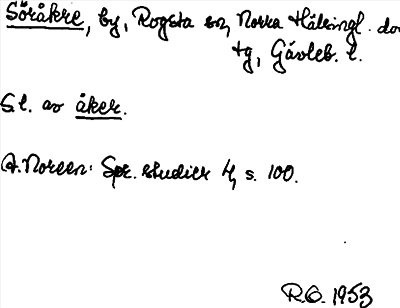 Söråkre, by, Rogsta sn, Norra Hälsingl. do
tg, Gävleb. l.
S.l. av åker.
A. Noreen: Spr. studier 4, s. 100.
R.O. 1953